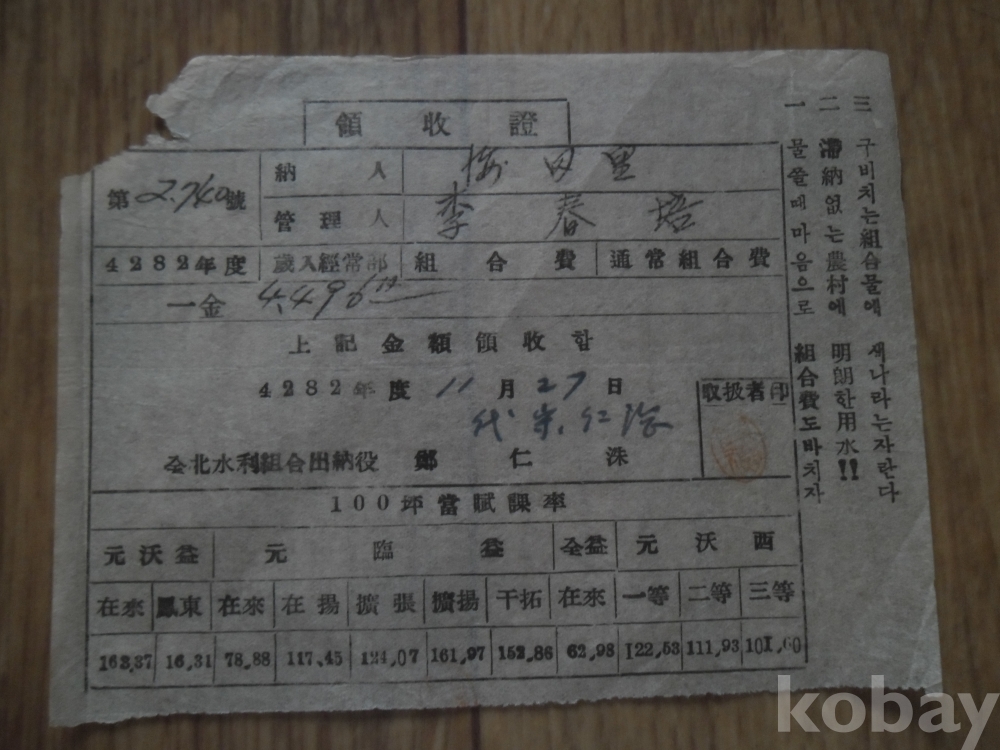 領收證
第2.740號
納人 田里
管理人 李春培
4282年度 歲入經常部 組合費 通常組合費
一金 4,496
上記金額領收함
4282年度 11月27日
取扱者印
全北水利組合出納役 鄭仁洙
100坪當賦課率
元沃益 元臨益 全益 元沃西
在來 鳳東 在來 在揚 擴張 擴揚 干拓 在來 一等 二等 三等
163,37 16,31 78,88 117,45 124,07 161,97 152,86 62,98 122,53 111,93 101,60
一 물쓸때마음으로 組合費도바치자
二 滯納없는農村에 明朗한用水!!
三 구비치는組合물에 새나라는자란다
kobay